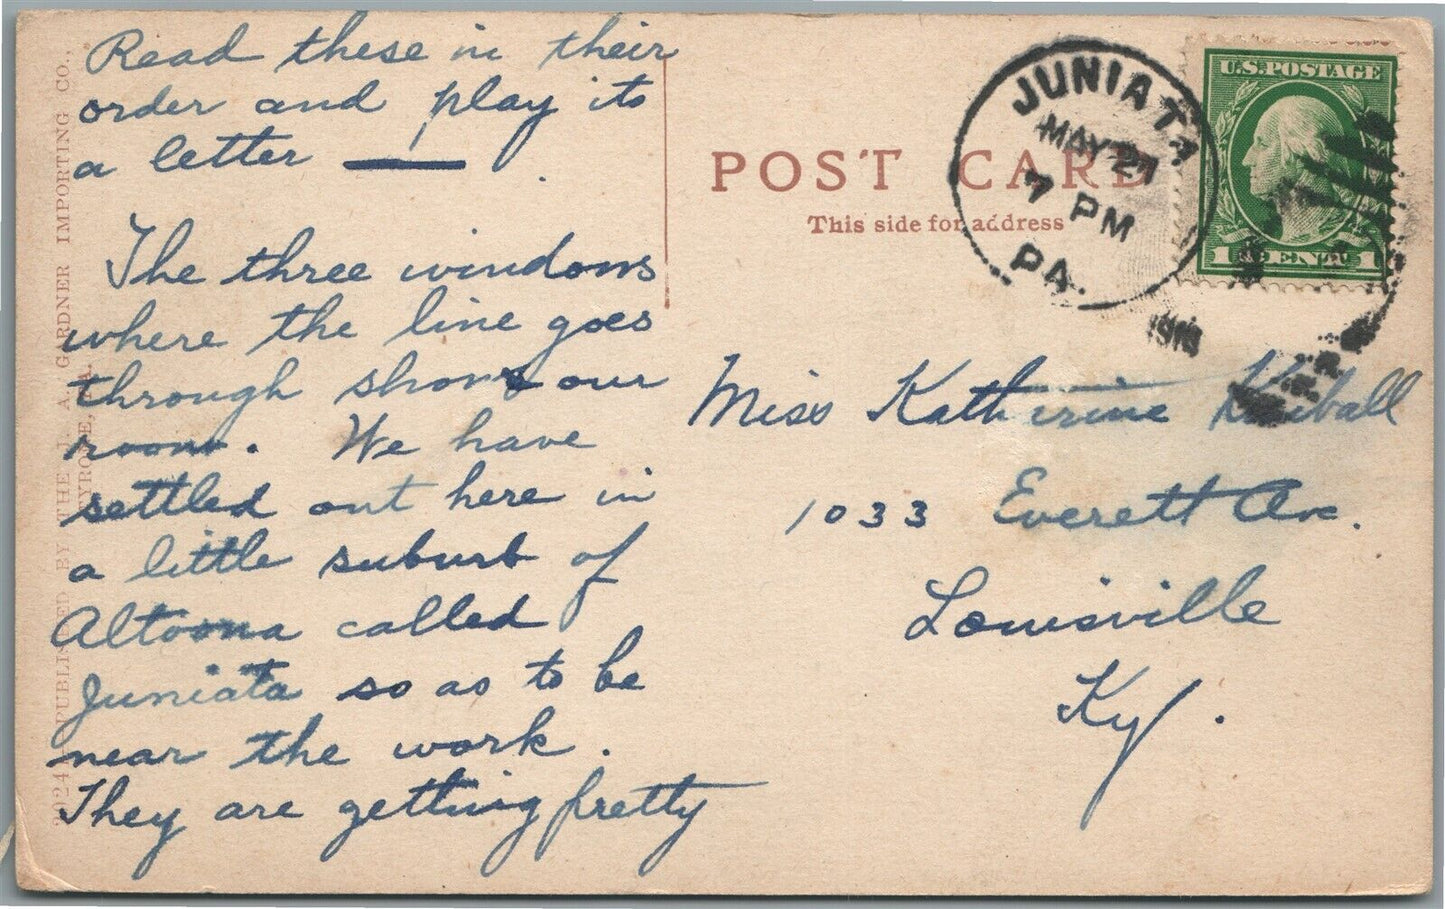 Read these in their
order and play its
a letter —
The three windows
where the line goes
through shows our
room. We have
settled out here in
a little suburb of
Altoona called
Juniata so as to be
near the work.
They are getting pretty
POST CARD
This side for address
JUNIATA
MAY 27
7 PM
PA.
U.S. POSTAGE
1 CENT 1
Miss Katherine Kimball
1033 Everett Ave.
Louisville
Ky.
PUBLISHED BY THE J. A. GARDNER IMPORTING CO.,
TYRONE, PA.